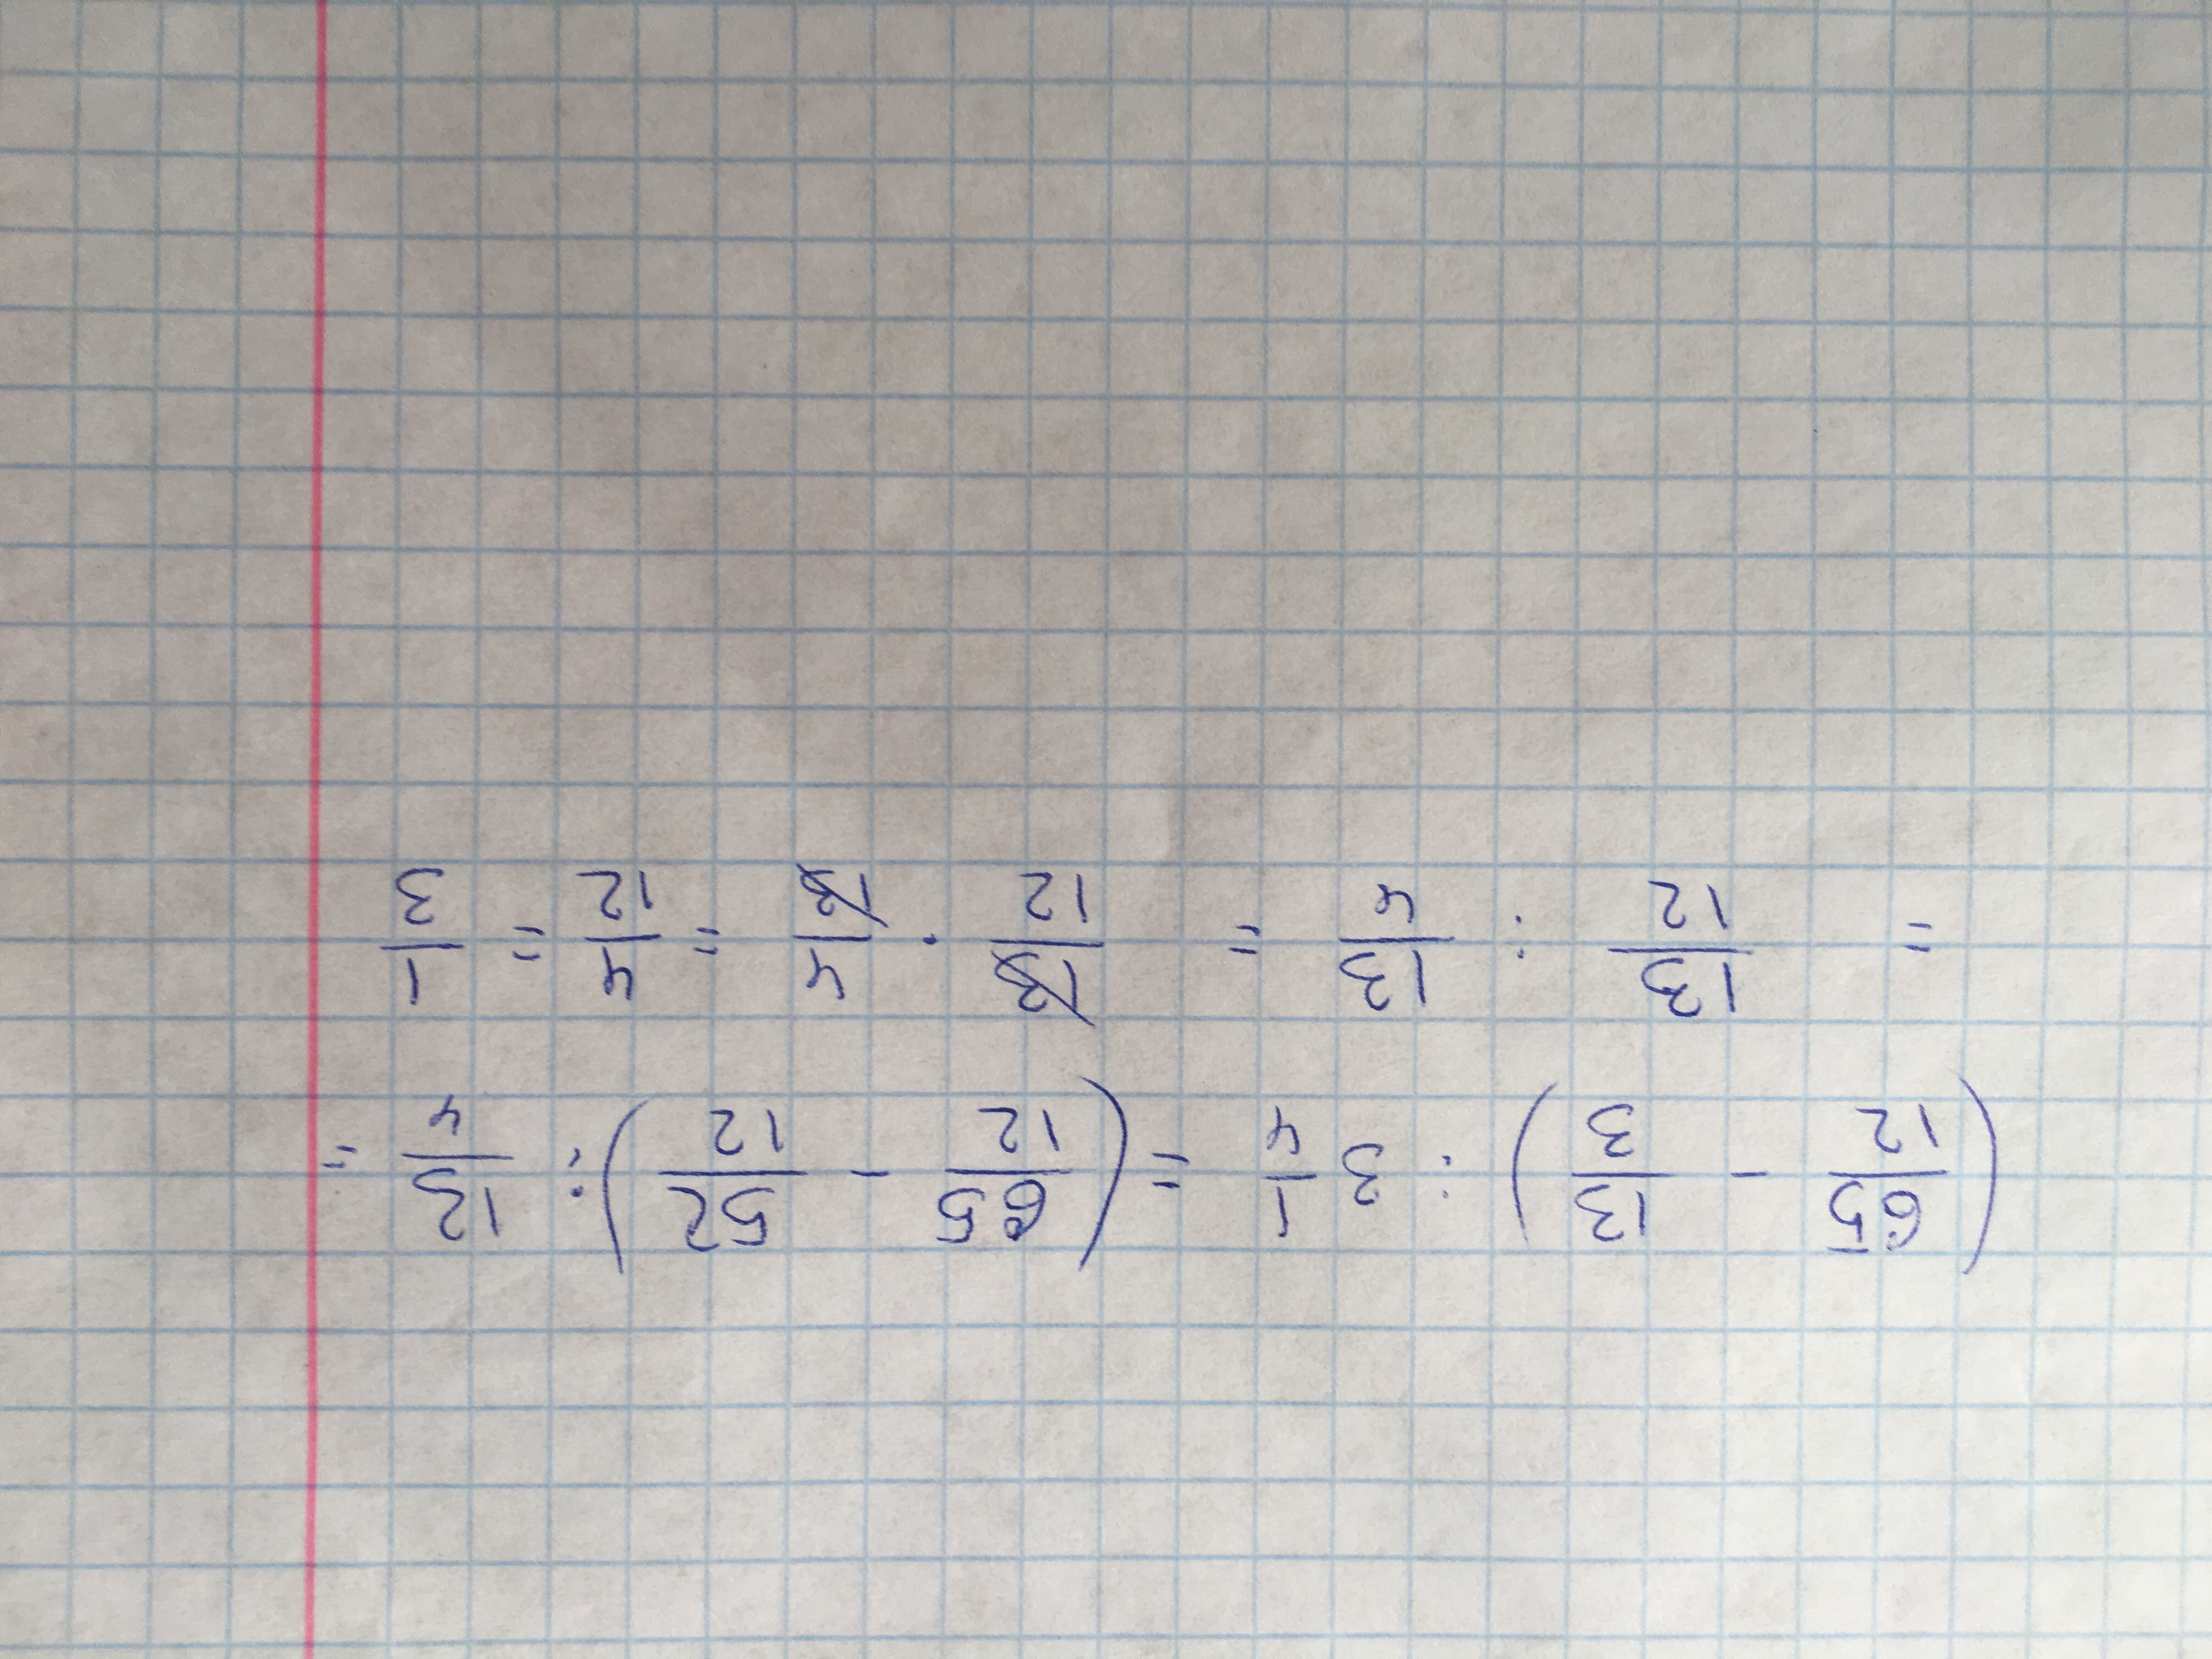 (65/12 - 13/3) : 3 1/4 = (65/12 - 52/12) : 13/4 =
= 13/12 : 13/4 = 13/12 · 4/13 = 4/12 = 1/3